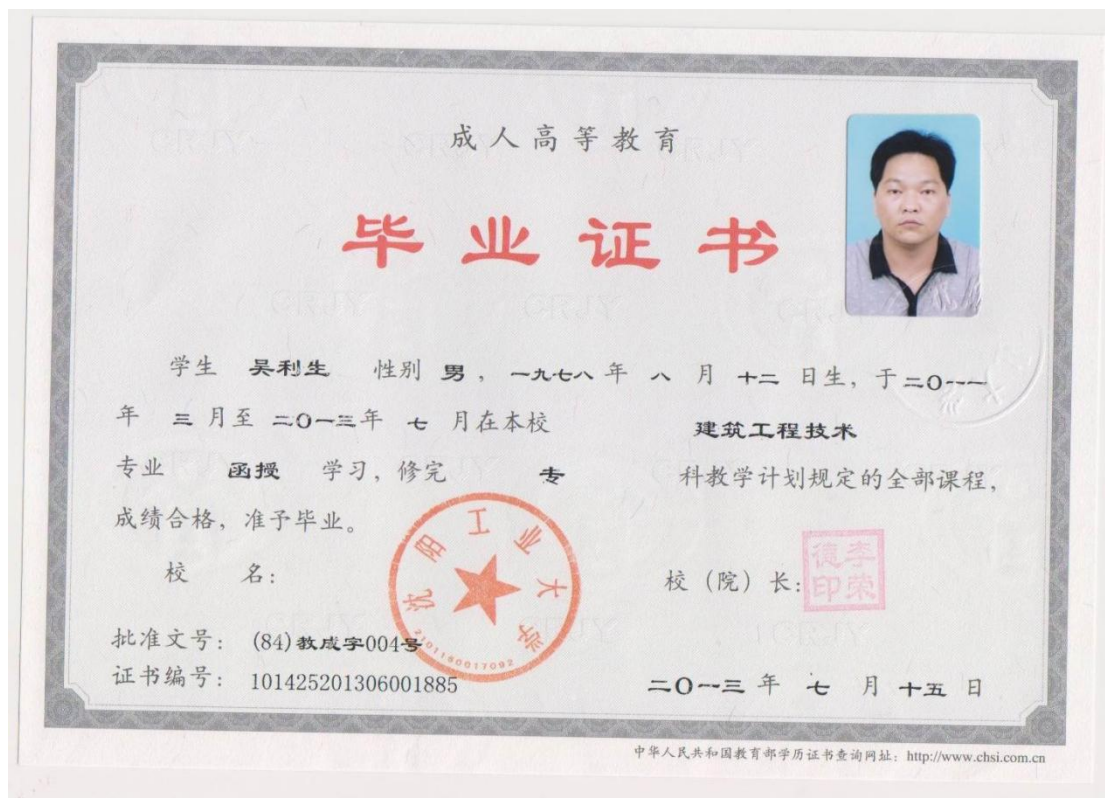 成人高等教育
毕业证书
学生 吴利生 性别 男，一九七八 年 八 月 十二 日生，于二〇一一
年 三 月至 二〇一三年 七 月在本校 建筑工程技术
专业 函授 学习，修完 专 科教学计划规定的全部课程，
成绩合格，准予毕业。
校 名：
沈阳工业大学
2101180017092
校（院）长：
李荣德印
批准文号：(84)教成字004号
证书编号：101425201306001885
二〇一三 年 七 月 十五 日
中华人民共和国教育部学历证书查询网址：http://www.chsi.com.cn